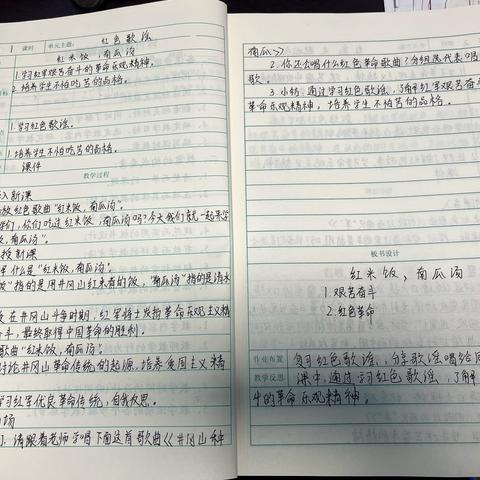 1 课时 单元主题: 红色歌谣
红米饭,南瓜汤
1.学习红军艰苦奋斗的革命乐观精神。
2.培养学生不怕吃苦的品格。
1.学习红色歌谣。
1.培养学生不怕吃苦的品格。
课件
教学过程
新课
放红色歌曲“红米饭,南瓜汤。
们,你们吃过红米饭,南瓜汤吗?今天我们就一起来学
,南瓜汤”。
授新课
什么是“红米饭,南瓜汤。
”指的是用井冈山红米煮的饭,“南瓜汤”指的是清水
在井冈山斗争时期,红军将士发扬革命乐观主义精
斗,最终取得中国革命的胜利。
歌曲“红米饭,南瓜汤。
讨论井冈山革命传统的起源,培养爱国主义精
学习红军优良革命传统,自我反思。
场
1.请跟着老师习唱下面这首歌曲《井冈山种
南瓜》》
2.你还会唱什么红色革命歌曲?分组派代表唱
歌。
3.小结:通过学习红色歌谣,了解红军艰苦奋斗
革命乐观精神,培养学生不怕苦的品格。
板书设计
红米饭,南瓜汤
1.艰苦奋斗
2.红色革命
作业布置 复习红色歌谣,分享歌谣唱给同
教学反思 课中,通过学习红色歌谣,了解
斗的革命乐观精神。